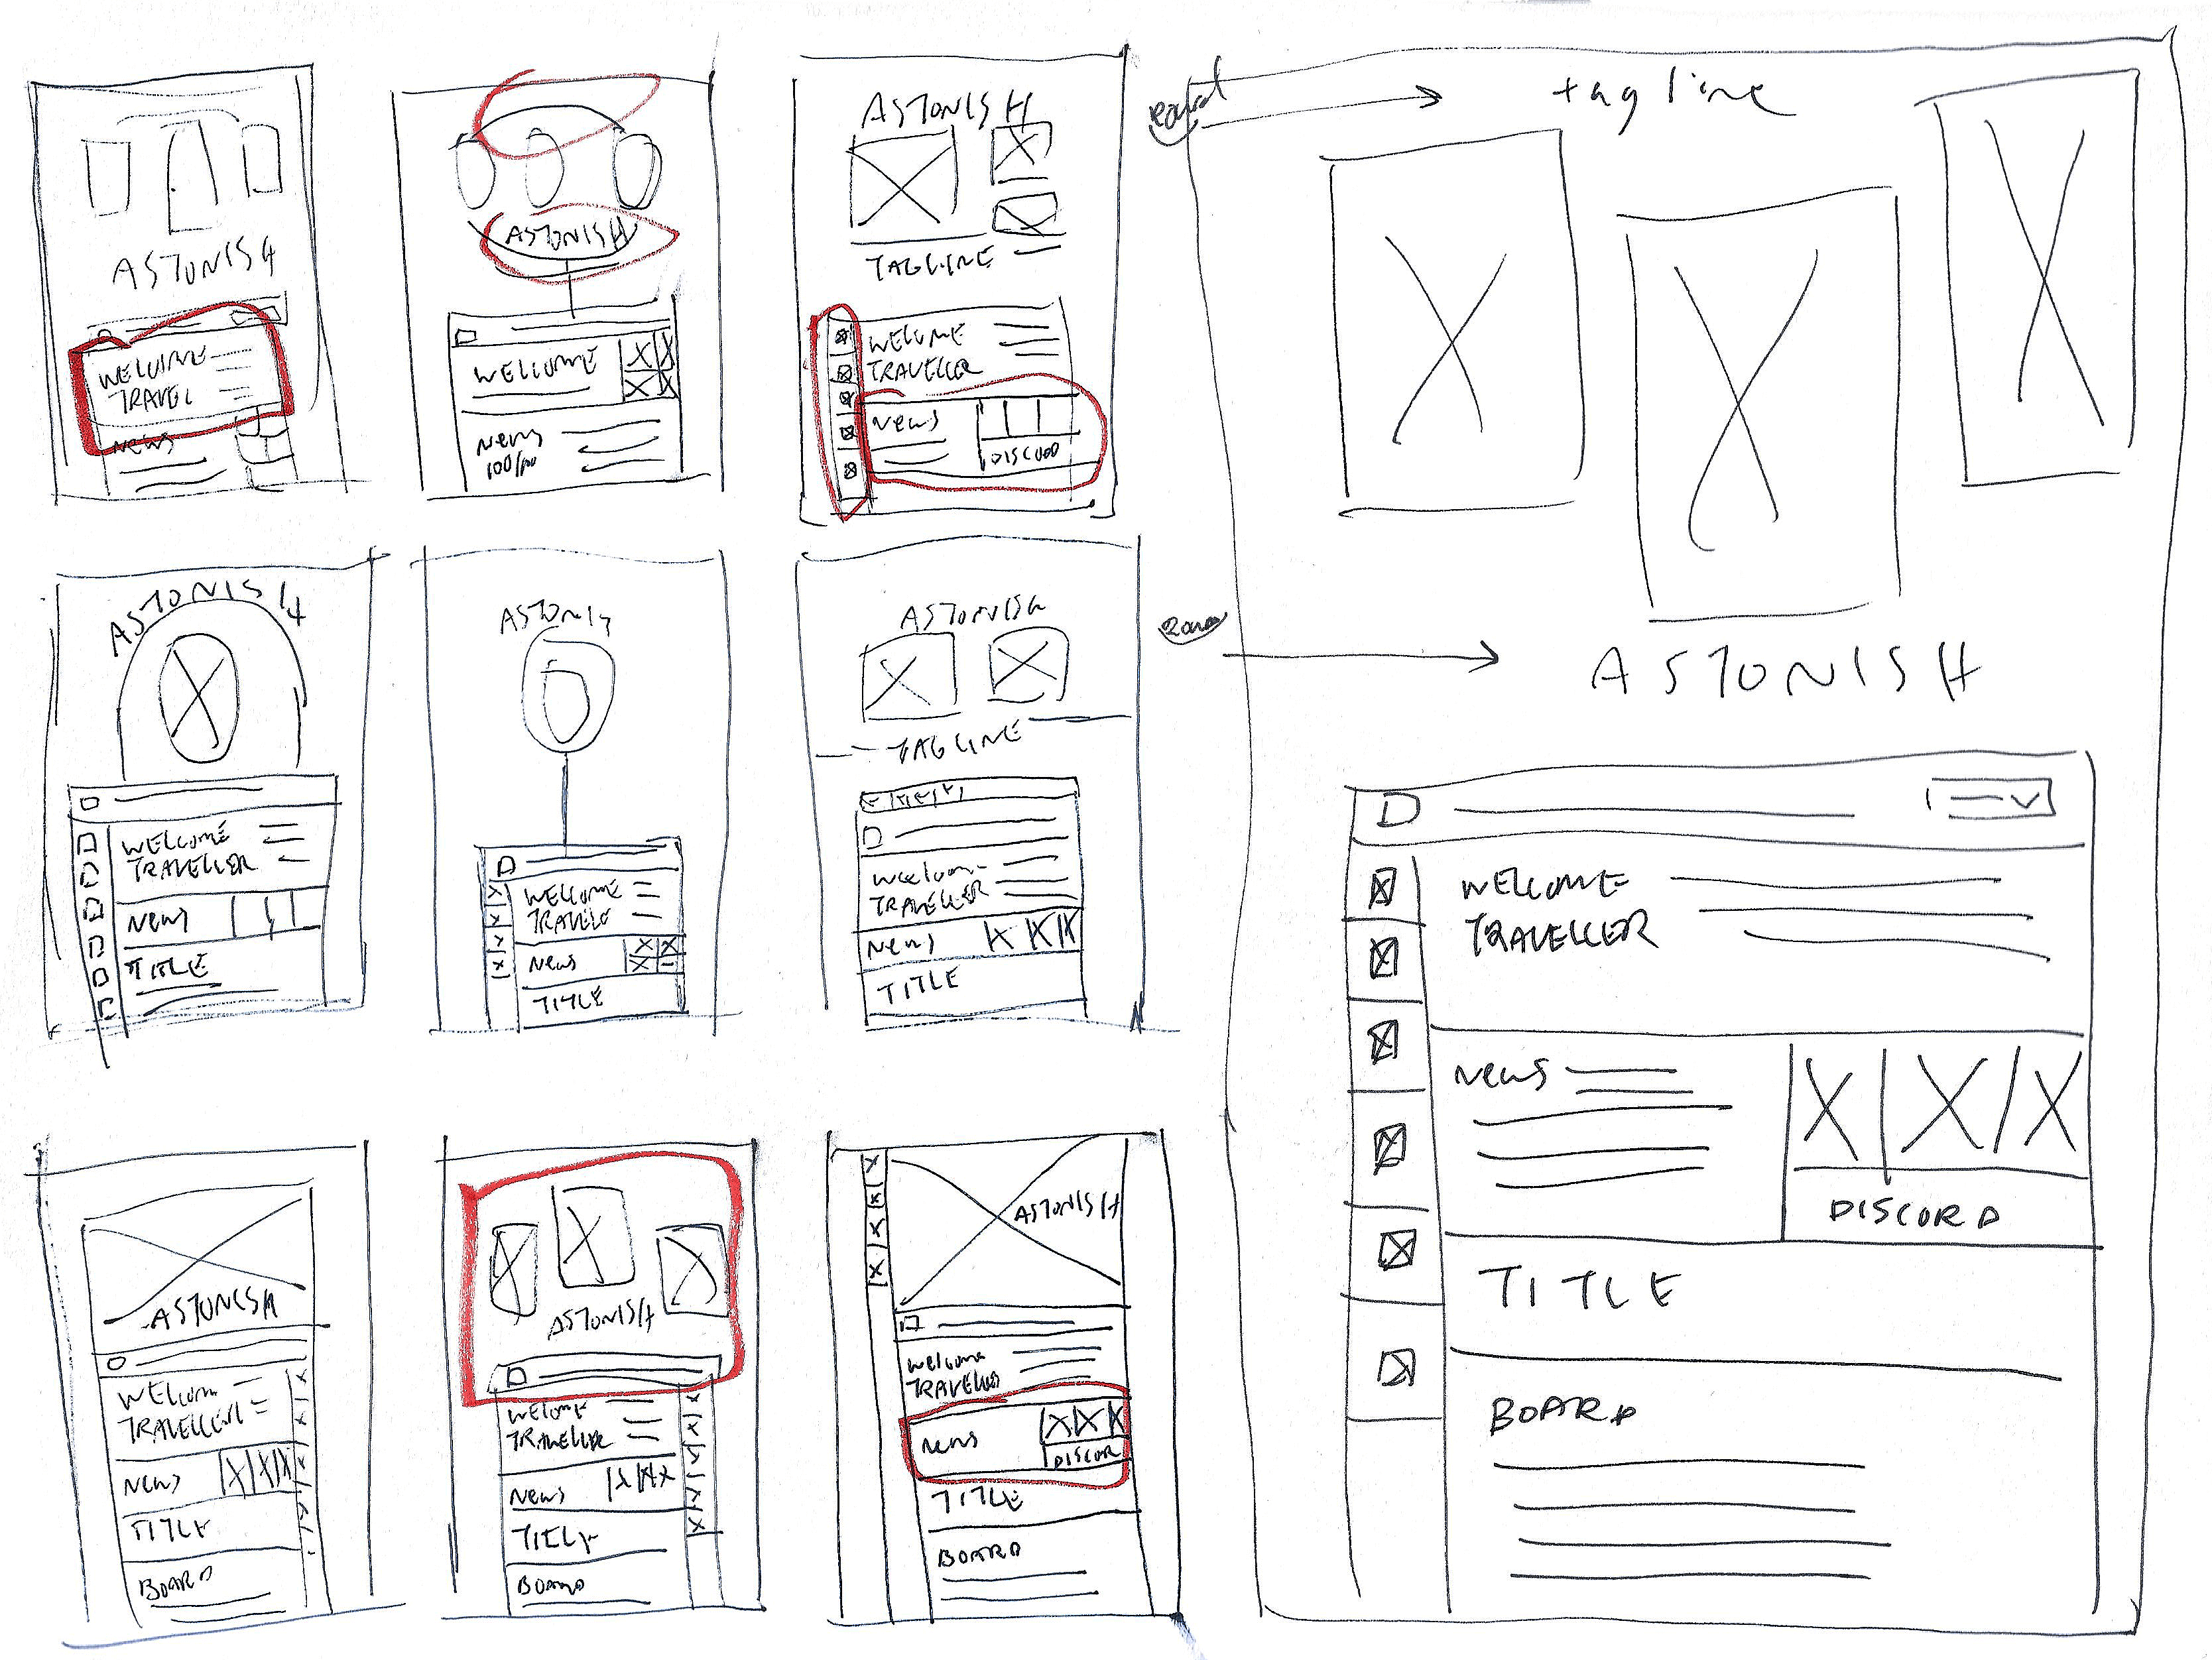 ASTONISH
WELCOME
TRAVEL
NEWS
ASTONISH
WELCOME
News
100/100
ASTONISH
TAGLINE
WELCOME
TRAVELLER
News
DISCORD
ASTONISH
WELLCOME
TRAVELLER
News
TITLE
ASTONIS
WELCOME
TRAVELE
News
TITLE
ASTONISH
TAGLINE
Welcome
TRAVELLER
News
TITLE
ASTONISH
WELCOM
TRAVELLER
News
TITLE
BOARD
ASTONISH
WELCOME
TRAVELLER
News
TITLE
BOARD
ASTONISH
Welcome
TRAVELLER
News
DISCOR
TITLE
BOARD
tagline
ASTONISH
WELCOME
TRAVELLER
News
DISCORD
TITLE
BOARD